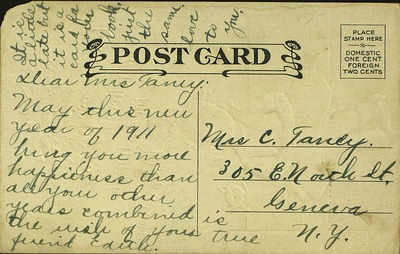 It is
a little
late but
it is a
card for
look
just
the
same.
love
to
you.
POST CARD
PLACE
STAMP HERE
DOMESTIC
ONE CENT
FOREIGN
TWO CENTS
Dear Mrs Tancy:
May this new
year of 1911
bring you more
happiness than
all your other
years combined is
the wish of your true
friend Edith.
Mrs C. Tancy.
305 E. North St.
Geneva
N.Y.